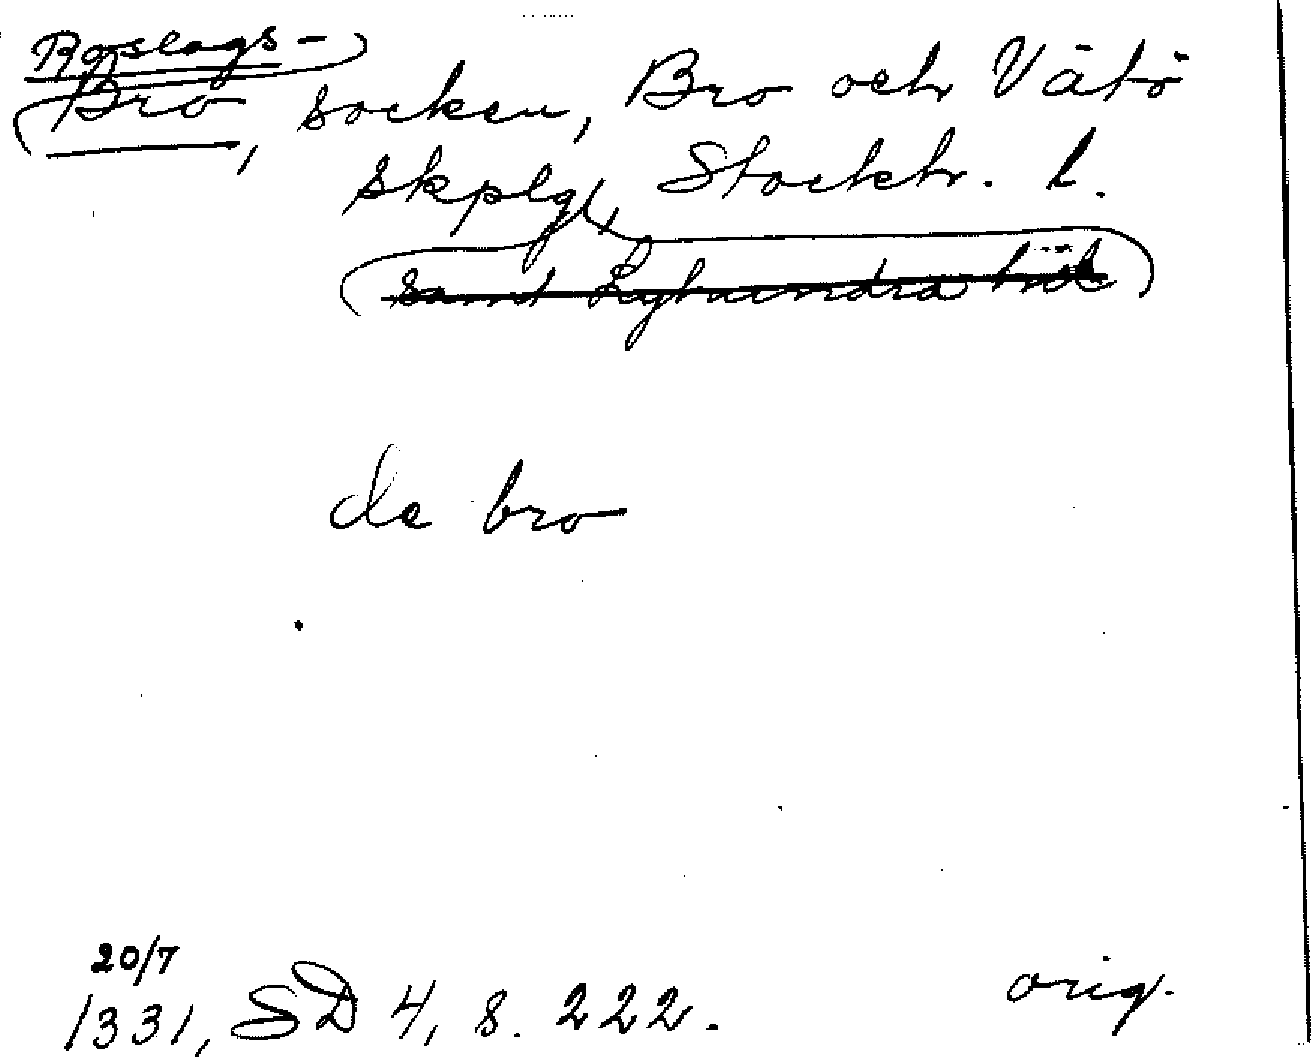 Roslags-
Bro, socken, Bro och Vätö
skplg, Stockh. l.
samt Lyhundra
de bro
20/7
1331, SD 4, s. 222. orig.